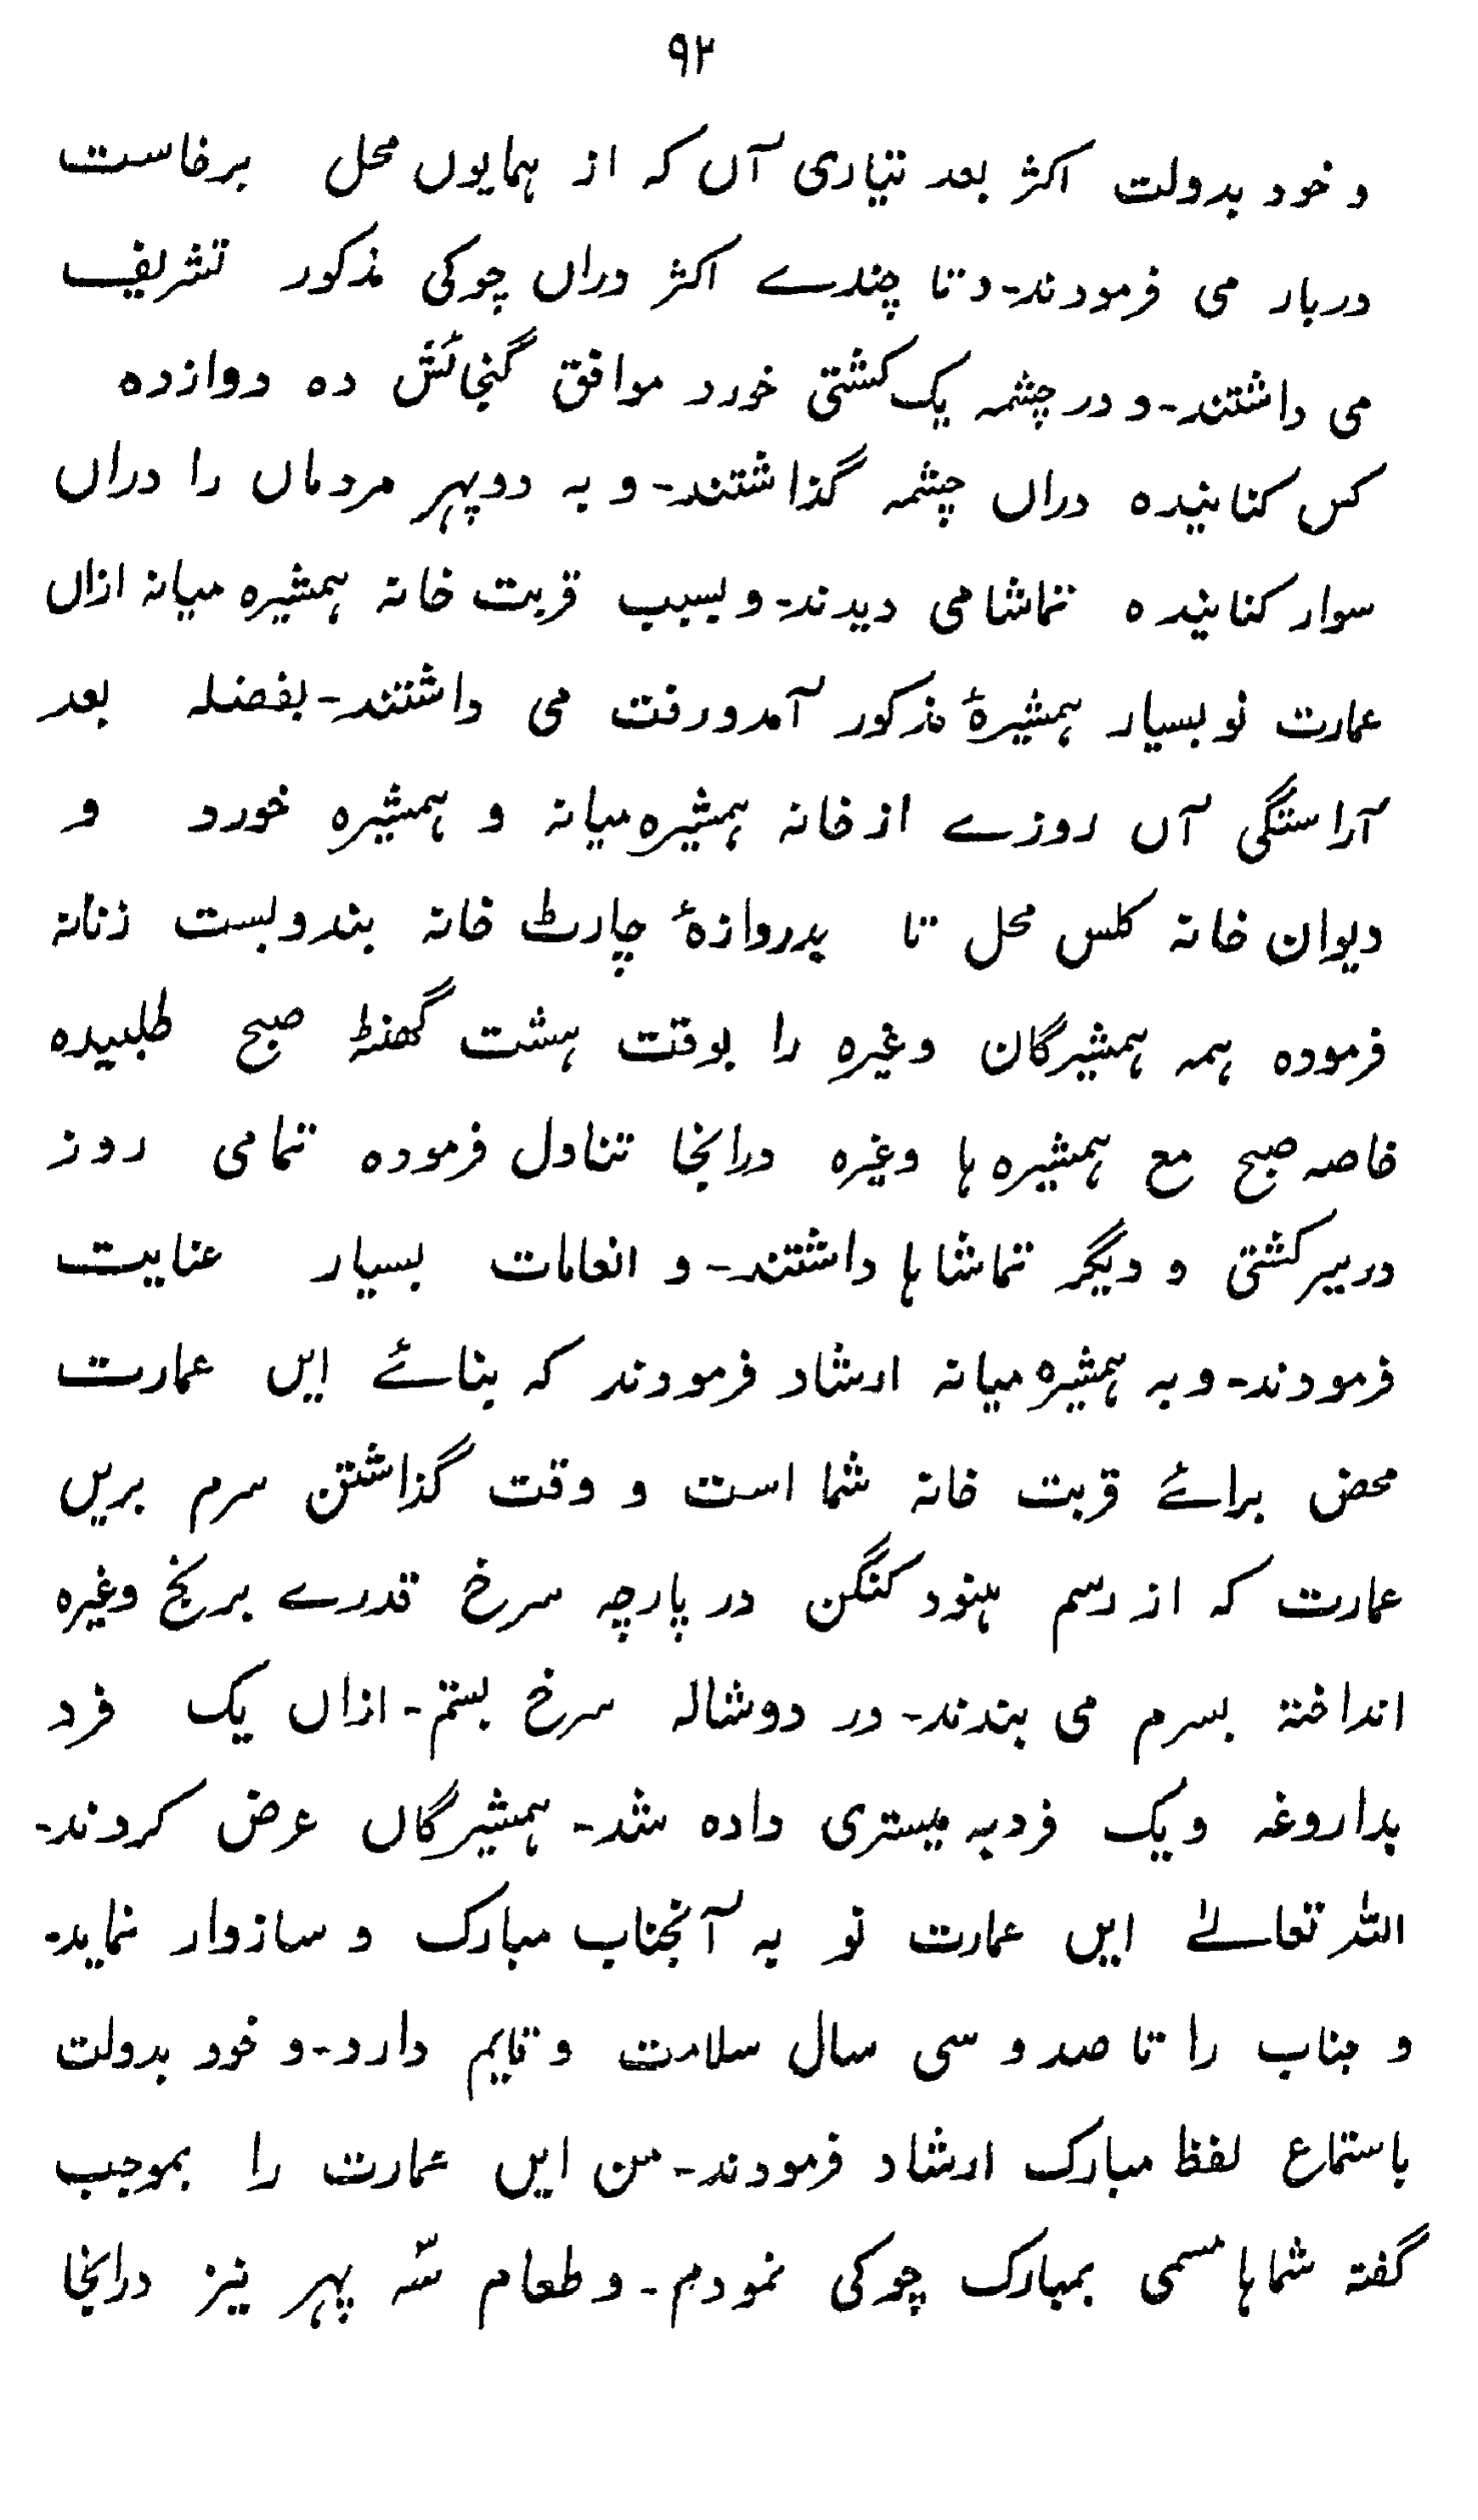 ۹۲
و خود بدولت اکثر بعد تیاری آں کہ از ہمایوں محل برخاست
دربار می فرمودند۔ و تا چندے اکثر دراں چوکی مذکور تشریف
می داشتند۔ و در چشمہ یک کشتی خورد موافق گنجائش دہ دوازدہ
کس کنانیدہ دراں چشمہ گذاشتند۔ و بہ دوپہر مردماں را دراں
سوار کنانیدہ تماشا می دیدند۔ و بسبب قربت خانہ ہمشیرہ میانہ ازاں
عمارت نو بسیار ہمشیرۂ مذکور آمدورفت می داشتند۔ بفضلہ بعد
آراستگی آں روزے از خانہ ہمشیرہ میانہ و ہمشیرہ خورد و
دیوان خانہ کلس محل تا بدروازۂ چارٹ خانہ بندوبست زنانہ
فرمودہ ہمہ ہمشیرگان وغیرہ را بوقت ہشت گھنٹہ صبح طلبیدہ
خاصہ صبح مع ہمشیرہ ہا وغیرہ درانجا تناول فرمودہ تمامی روز
در سیر کشتی و دیگر تماشا ہا داشتند۔ و انعامات بسیار عنایت
فرمودند۔ و بہ ہمشیرہ میانہ ارشاد فرمودند کہ بنائے ایں عمارت
محض برائے قربت خانہ شما است و وقت گذاشتن سرم بریں
عمارت کہ از رسم ہنود کنگن در پارچہ سرخ قدرے برنج وغیرہ
انداختہ بسرم می بندند۔ در دوشالہ سرخ بستم۔ ازاں یک فرد
بداروغہ و یک فرد بہ میستری دادہ شد۔ ہمشیرگاں عرض کردند۔
اللہ تعالےٰ ایں عمارت نو بہ آنجناب مبارک و سازوار نماید۔
و جناب را تا صد و سی سال سلامت و قایم دارد۔ و خود بدولت
باستماع لفظ مبارک ارشاد فرمودند۔ من ایں عمارت را بموجب
گفتہ شما ہا مسمی بمبارک چوکی نمودم۔ و طعام سّہ پہر نیز درانجا